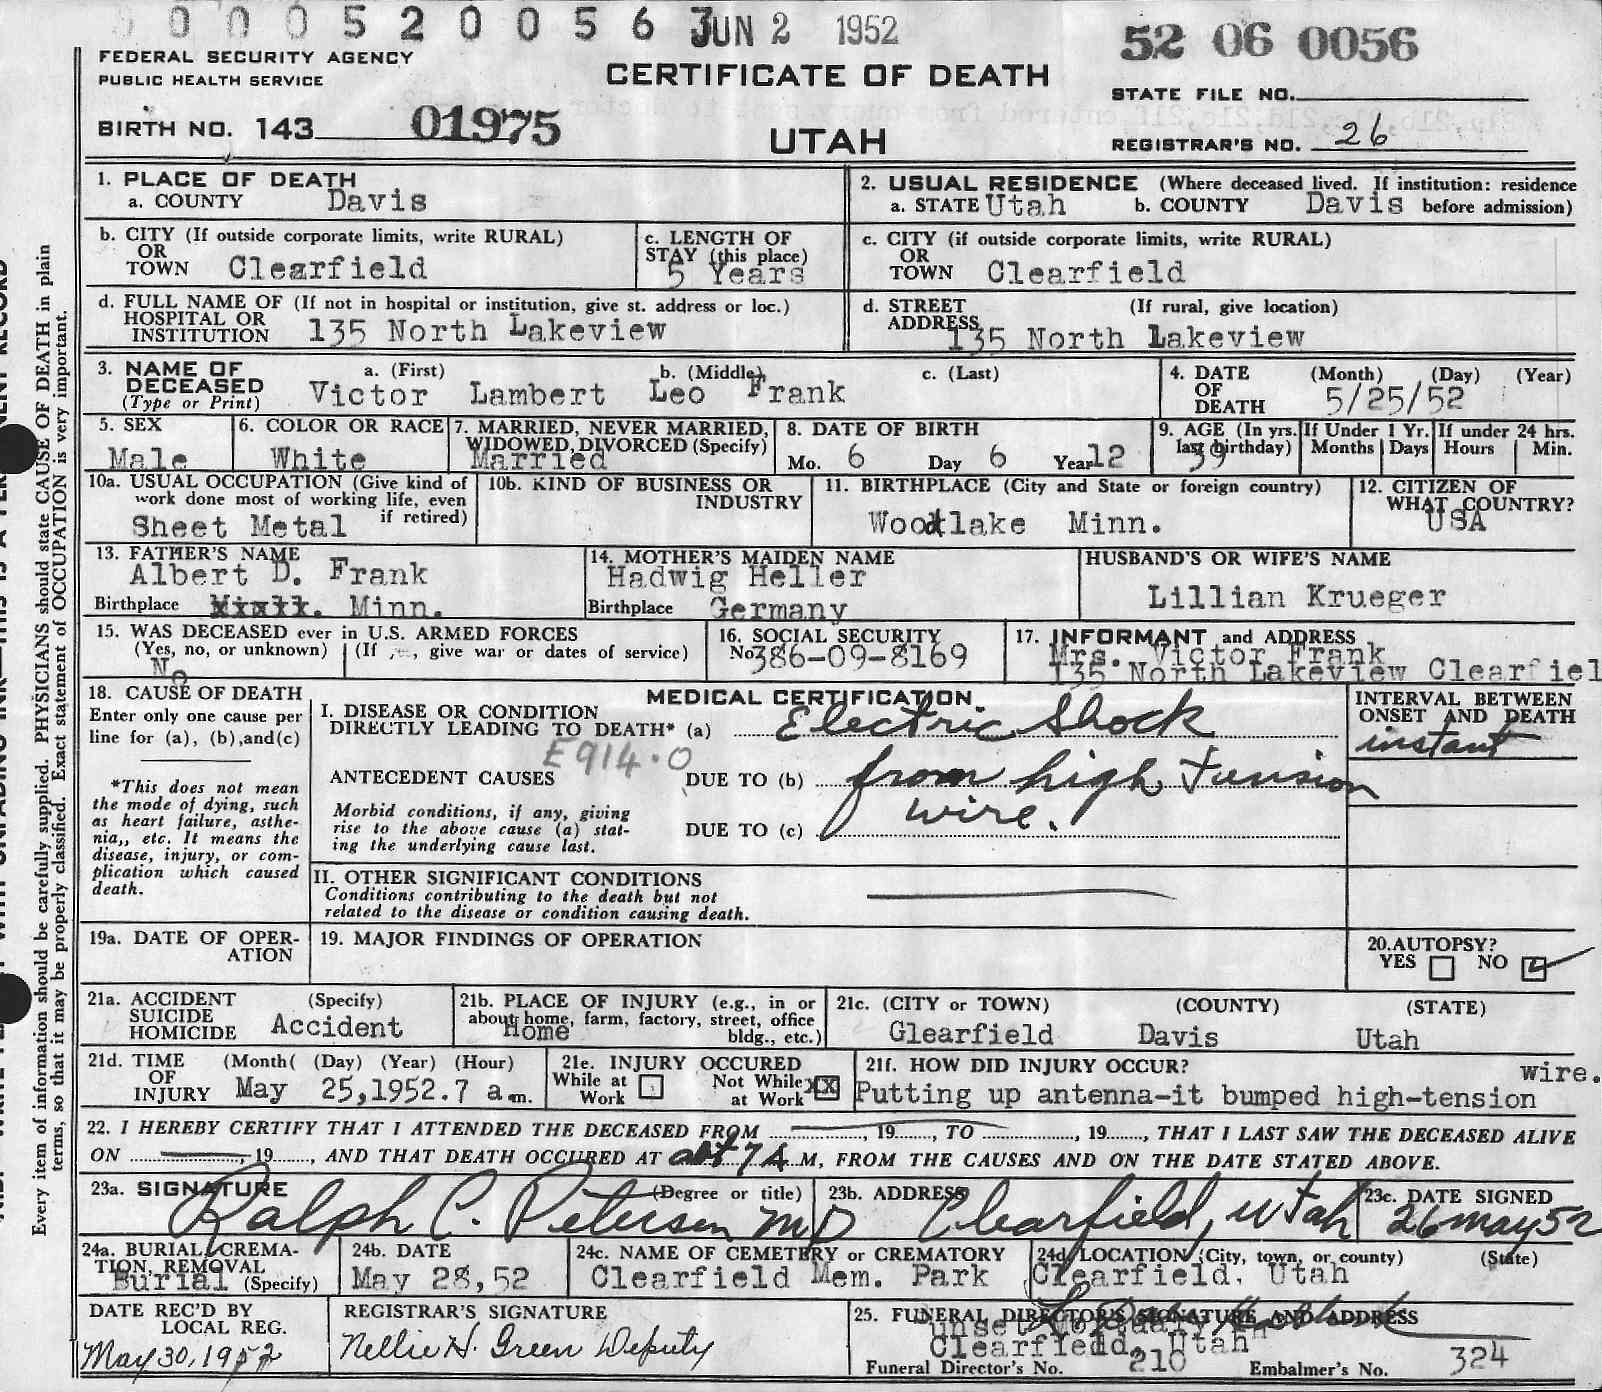 0 0 0 5 2 0 0 5 6 JUN 2 1952
52 06 0056
FEDERAL SECURITY AGENCY
PUBLIC HEALTH SERVICE
CERTIFICATE OF DEATH
STATE FILE NO.
BIRTH NO. 143 01975
UTAH
REGISTRAR'S NO. 26
1. PLACE OF DEATH
a. COUNTY Davis
2. USUAL RESIDENCE (Where deceased lived. If institution: residence
a. STATE Utah b. COUNTY Davis before admission)
b. CITY (If outside corporate limits, write RURAL)
OR
TOWN Clearfield
c. LENGTH OF
STAY (this place)
5 Years
c. CITY (if outside corporate limits, write RURAL)
OR
TOWN Clearfield
d. FULL NAME OF (If not in hospital or institution, give st. address or loc.)
HOSPITAL OR
INSTITUTION 135 North Lakeview
d. STREET (If rural, give location)
ADDRESS
135 North Lakeview
3. NAME OF a. (First) b. (Middle) c. (Last)
DECEASED
(Type or Print) Victor Lambert Leo Frank
4. DATE (Month) (Day) (Year)
OF
DEATH 5/25/52
5. SEX
Male
6. COLOR OR RACE
White
7. MARRIED, NEVER MARRIED,
WIDOWED, DIVORCED (Specify)
Married
8. DATE OF BIRTH
Mo. 6 Day 6 Year 12
9. AGE (In yrs.
last birthday)
39
If Under 1 Yr.
Months Days
If under 24 hrs.
Hours Min.
10a. USUAL OCCUPATION (Give kind of
work done most of working life, even
if retired)
Sheet Metal
10b. KIND OF BUSINESS OR
INDUSTRY
11. BIRTHPLACE (City and State or foreign country)
Woodlake Minn.
12. CITIZEN OF
WHAT COUNTRY?
USA
13. FATHER'S NAME
Albert D. Frank
Birthplace Minn.
14. MOTHER'S MAIDEN NAME
Hadwig Heller
Birthplace Germany
HUSBAND'S OR WIFE'S NAME
Lillian Krueger
15. WAS DECEASED ever in U.S. ARMED FORCES
(Yes, no, or unknown) (If , give war or dates of service)
No
16. SOCIAL SECURITY
No. 386-09-8169
17. INFORMANT and ADDRESS
Mrs. Victor Frank
135 North Lakeview Clearfiel
18. CAUSE OF DEATH
Enter only one cause per
line for (a), (b), and (c)
*This does not mean
the mode of dying, such
as heart failure, asthe-
nia,, etc. It means the
disease, injury, or com-
plication which caused
death.
MEDICAL CERTIFICATION
I. DISEASE OR CONDITION
DIRECTLY LEADING TO DEATH* (a) Electric Shock
E914.0
ANTECEDENT CAUSES DUE TO (b) from high Tension
wire.
Morbid conditions, if any, giving
rise to the above cause (a) stat-
ing the underlying cause last.
DUE TO (c)
INTERVAL BETWEEN
ONSET AND DEATH
instant
II. OTHER SIGNIFICANT CONDITIONS
Conditions contributing to the death but not
related to the disease or condition causing death.
19a. DATE OF OPER-
ATION
19. MAJOR FINDINGS OF OPERATION
20. AUTOPSY?
YES NO
21a. ACCIDENT (Specify)
SUICIDE
HOMICIDE Accident
21b. PLACE OF INJURY (e.g., in or
about home, farm, factory, street, office
bldg., etc.)
Home
21c. (CITY or TOWN) (COUNTY) (STATE)
Glearfield Davis Utah
21d. TIME (Month( (Day) (Year) (Hour)
OF
INJURY May 25,1952. 7 a m.
21e. INJURY OCCURED
While at
Work
Not While
at Work xx
21f. HOW DID INJURY OCCUR?
wire.
Putting up antenna-it bumped high-tension
22. I HEREBY CERTIFY THAT I ATTENDED THE DECEASED FROM , 19 , TO , 19 , THAT I LAST SAW THE DECEASED ALIVE
ON , 19 , AND THAT DEATH OCCURED AT abt 7 A M, FROM THE CAUSES AND ON THE DATE STATED ABOVE.
23a. SIGNATURE (Degree or title)
Ralph C. Petersen MD
23b. ADDRESS
Clearfield, Utah
23c. DATE SIGNED
26 may 52
24a. BURIAL, CREMA-
TION, REMOVAL
Burial (Specify)
24b. DATE
May 28,52
24c. NAME OF CEMETERY OR CREMATORY
Clearfield Mem. Park
24d. LOCATION (City, town, or county) (State)
Clearfield, Utah
DATE REC'D BY
LOCAL REG.
May 30, 1952
REGISTRAR'S SIGNATURE
Nellie H. Green Deputy
25. FUNERAL DIRECTOR'S SIGNATURE AND ADDRESS
Clearfield, Utah
Funeral Director's No. 210 Embalmer's No. 324
Every item of information should be carefully supplied. PHYSICIANS should state CAUSE OF DEATH in plain
terms, so that it may be properly classified. Exact statement of OCCUPATION is very important.